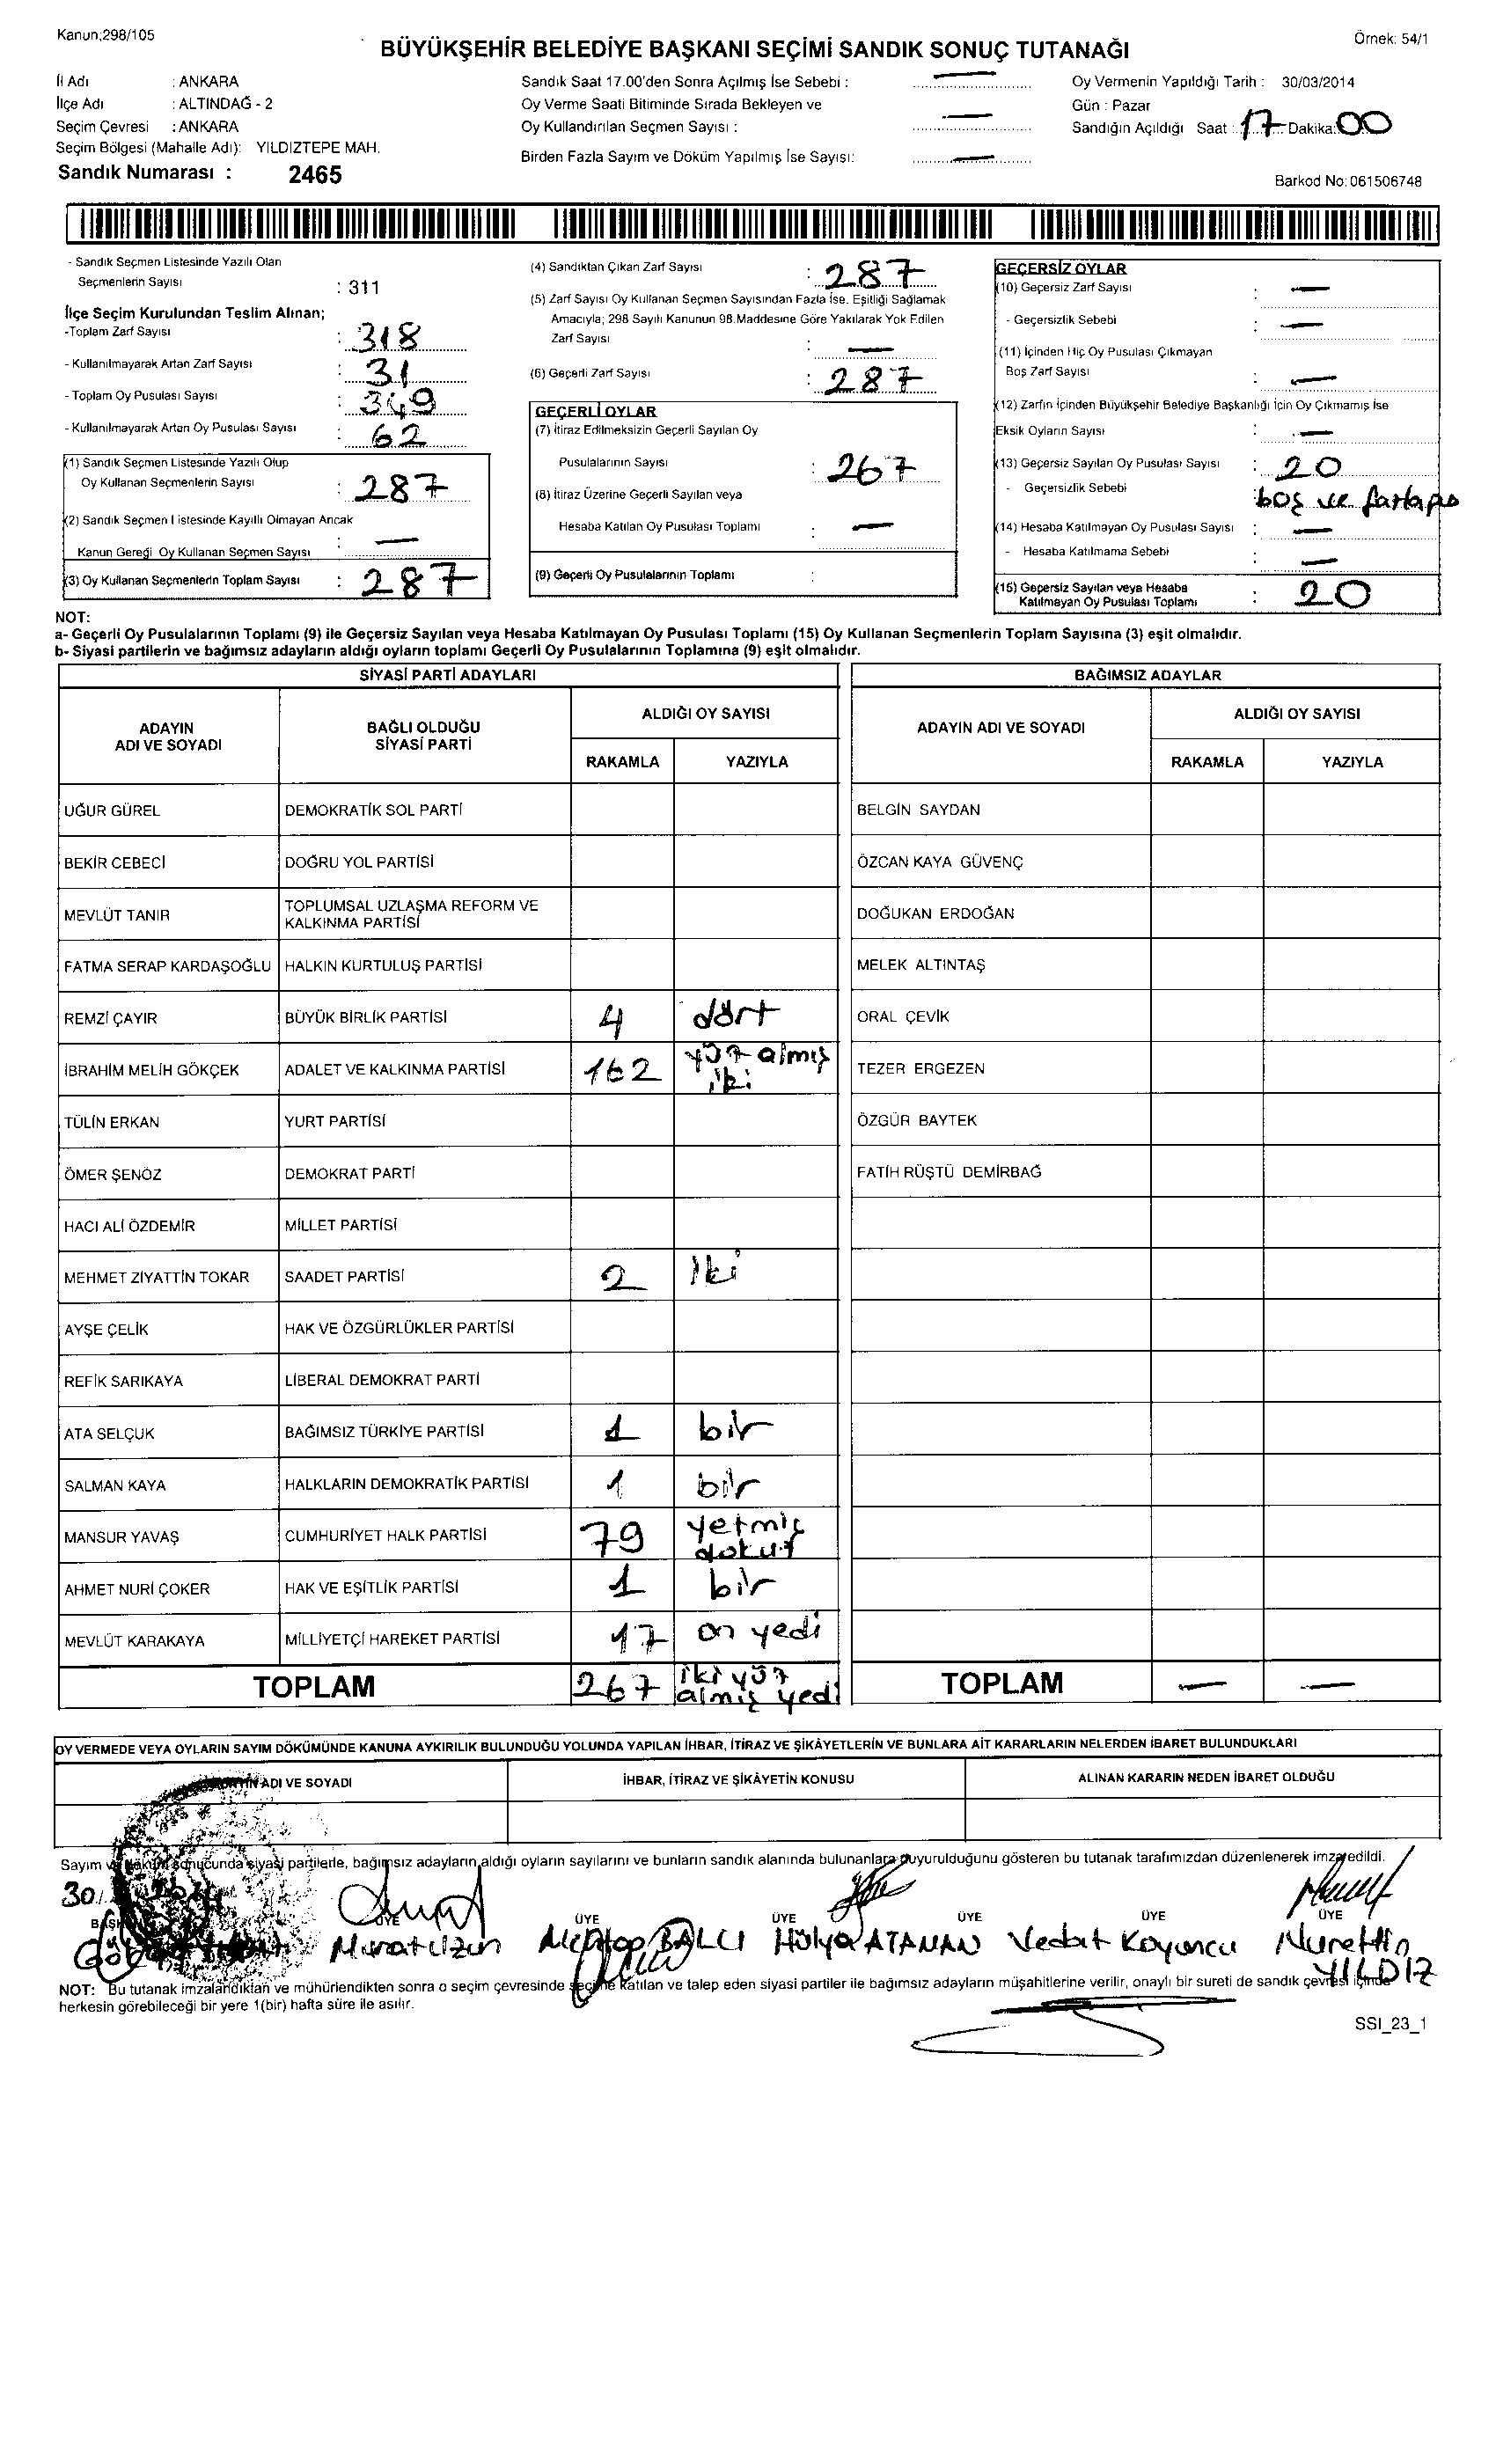 Kanun;298/105
Örnek: 54/1
BÜYÜKŞEHİR BELEDİYE BAŞKANI SEÇİMİ SANDIK SONUÇ TUTANAĞI
İl Adı : ANKARA
İlçe Adı : ALTINDAĞ - 2
Seçim Çevresi : ANKARA
Seçim Bölgesi (Mahalle Adı): YILDIZTEPE MAH.
Sandık Numarası : 2465
Sandık Saat 17.00'den Sonra Açılmış İse Sebebi : —
Oy Verme Saati Bitiminde Sırada Bekleyen ve
Oy Kullandırılan Seçmen Sayısı : —
Birden Fazla Sayım ve Döküm Yapılmış İse Sayısı: —
Oy Vermenin Yapıldığı Tarih : 30/03/2014
Gün : Pazar
Sandığın Açıldığı Saat : 17 Dakika: 00
Barkod No: 061506748
- Sandık Seçmen Listesinde Yazılı Olan
Seçmenlerin Sayısı : 311
İlçe Seçim Kurulundan Teslim Alınan;
-Toplam Zarf Sayısı : 318
- Kullanılmayarak Artan Zarf Sayısı : 31
- Toplam Oy Pusulası Sayısı : 349
- Kullanılmayarak Artan Oy Pusulası Sayısı : 62
(1) Sandık Seçmen Listesinde Yazılı Olup
Oy Kullanan Seçmenlerin Sayısı : 287
(2) Sandık Seçmen Listesinde Kayıllı Olmayan Ancak
Kanun Gereği Oy Kullanan Seçmen Sayısı : —
(3) Oy Kullanan Seçmenlerin Toplam Sayısı : 287
(4) Sandıktan Çıkan Zarf Sayısı : 287
(5) Zarf Sayısı Oy Kullanan Seçmen Sayısından Fazla İse. Eşitliği Sağlamak
Amacıyla; 298 Sayılı Kanunun 98.Maddesine Göre Yakılarak Yok Edilen
Zarf Sayısı : —
(6) Geçerli Zarf Sayısı : 287
GEÇERLİ OYLAR
(7) İtiraz Edilmeksizin Geçerli Sayılan Oy
Pusulalarının Sayısı : 267
(8) İtiraz Üzerine Geçerli Sayılan veya
Hesaba Katılan Oy Pusulası Toplamı : —
(9) Geçerli Oy Pusulalarının Toplamı :
GEÇERSİZ OYLAR
(10) Geçersiz Zarf Sayısı : —
- Geçersizlik Sebebi : —
(11) İçinden Hiç Oy Pusulası Çıkmayan
Boş Zarf Sayısı : —
(12) Zarfın İçinden Büyükşehir Belediye Başkanlığı İçin Oy Çıkmamış İse
Eksik Oyların Sayısı : —
(13) Geçersiz Sayılan Oy Pusulası Sayısı : 20
- Geçersizlik Sebebi boş ve fazla
(14) Hesaba Katılmayan Oy Pusulası Sayısı : —
- Hesaba Katılmama Sebebi : —
(15) Geçersiz Sayılan veya Hesaba
Katılmayan Oy Pusulası Toplamı : 20
NOT:
a- Geçerli Oy Pusulalarının Toplamı (9) ile Geçersiz Sayılan veya Hesaba Katılmayan Oy Pusulası Toplamı (15) Oy Kullanan Seçmenlerin Toplam Sayısına (3) eşit olmalıdır.
b- Siyasi partilerin ve bağımsız adayların aldığı oyların toplamı Geçerli Oy Pusulalarının Toplamına (9) eşit olmalıdır.
SİYASİ PARTİ ADAYLARI
ADAYIN ADI VE SOYADI
BAĞLI OLDUĞU SİYASİ PARTİ
ALDIĞI OY SAYISI
RAKAMLA YAZIYLA
UĞUR GÜREL DEMOKRATİK SOL PARTİ
BEKİR CEBECİ DOĞRU YOL PARTİSİ
MEVLÜT TANIR TOPLUMSAL UZLAŞMA REFORM VE KALKINMA PARTİSİ
FATMA SERAP KARDAŞOĞLU HALKIN KURTULUŞ PARTİSİ
REMZİ ÇAYIR BÜYÜK BİRLİK PARTİSİ 4 dört
İBRAHİM MELİH GÖKÇEK ADALET VE KALKINMA PARTİSİ 162 yüz almış iki
TÜLİN ERKAN YURT PARTİSİ
ÖMER ŞENÖZ DEMOKRAT PARTİ
HACI ALİ ÖZDEMİR MİLLET PARTİSİ
MEHMET ZİYATTİN TOKAR SAADET PARTİSİ 2 iki
AYŞE ÇELİK HAK VE ÖZGÜRLÜKLER PARTİSİ
REFİK SARIKAYA LİBERAL DEMOKRAT PARTİ
ATA SELÇUK BAĞIMSIZ TÜRKİYE PARTİSİ 1 bir
SALMAN KAYA HALKLARIN DEMOKRATİK PARTİSİ 1 bir
MANSUR YAVAŞ CUMHURİYET HALK PARTİSİ 79 yetmiş dokuz
AHMET NURİ ÇOKER HAK VE EŞİTLİK PARTİSİ 1 bir
MEVLÜT KARAKAYA MİLLİYETÇİ HAREKET PARTİSİ 17 on yedi
TOPLAM 267 iki yüz almış yedi
BAĞIMSIZ ADAYLAR
ADAYIN ADI VE SOYADI
ALDIĞI OY SAYISI
RAKAMLA YAZIYLA
BELGİN SAYDAN
ÖZCAN KAYA GÜVENÇ
DOĞUKAN ERDOĞAN
MELEK ALTINTAŞ
ORAL ÇEVİK
TEZER ERGEZEN
ÖZGÜR BAYTEK
FATİH RÜŞTÜ DEMİRBAĞ
TOPLAM — —
OY VERMEDE VEYA OYLARIN SAYIM DÖKÜMÜNDE KANUNA AYKIRILIK BULUNDUĞU YOLUNDA YAPILAN İHBAR, İTİRAZ VE ŞİKÂYETLERİN VE BUNLARA AİT KARARLARIN NELERDEN İBARET BULUNDUKLARI
ADI VE SOYADI
İHBAR, İTİRAZ VE ŞİKÂYETİN KONUSU
ALINAN KARARIN NEDEN İBARET OLDUĞU
Sayım sonucunda siyasi partilerle, bağımsız adayların aldığı oyların sayılarını ve bunların sandık alanında bulunanlara duyurulduğunu gösteren bu tutanak tarafımızdan düzenlenerek imza edildi.
30/
ÜYE ÜYE ÜYE ÜYE ÜYE ÜYE
Murat Uzun BALCI Hülya ATAMAN Vedat Koyuncu Nurettin YILDIZ
NOT: Bu tutanak imzalandıktan ve mühürlendikten sonra o seçim çevresinde seçime katılan ve talep eden siyasi partiler ile bağımsız adayların müşahitlerine verilir, onaylı bir sureti de sandık çevresi içinde
herkesin görebileceği bir yere 1(bir) hafta süre ile asılır.
SSI_23_1